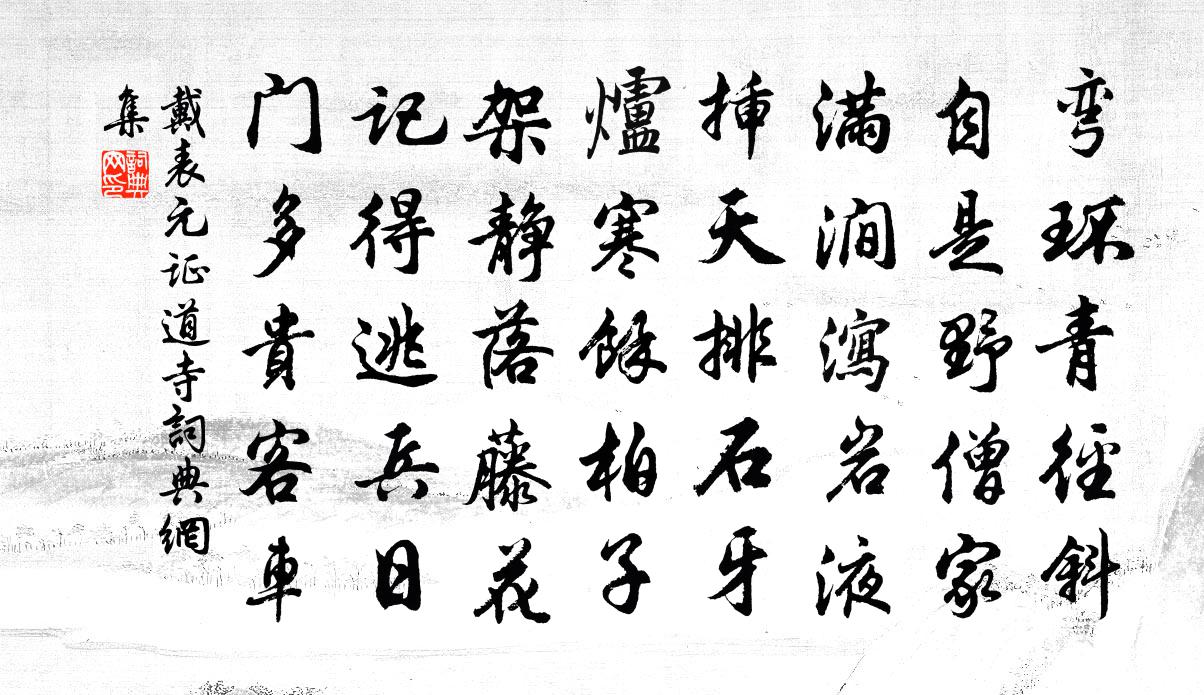 弯环青径斜
自是野僧家
满涧瀉岩液
插天排石牙
爐寒餘柏子
架静落藤花
记得逃兵日
门多貴客車
戴表元证道寺詞典網
集
詞典网印